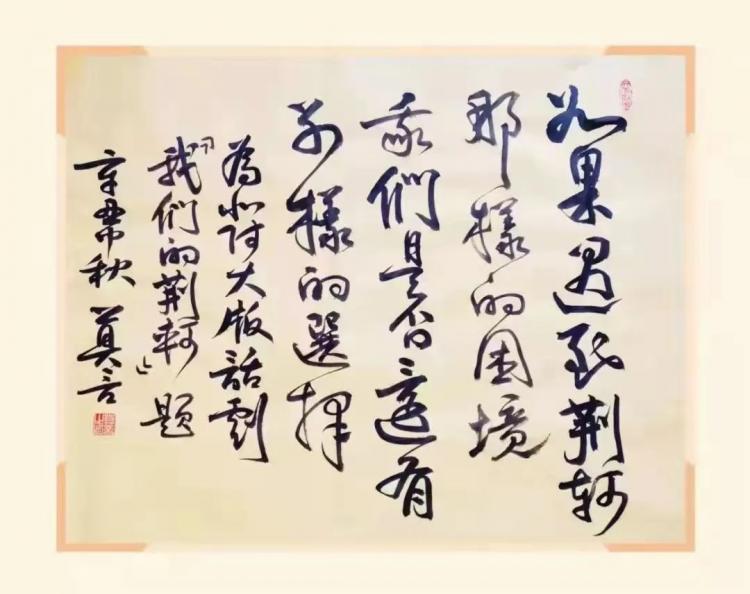 如果遇到荆軻
那樣的困境
我們是否還有
别樣的選擇
為北師大版話劇
「我們的荆軻」題
辛丑秋 莫言